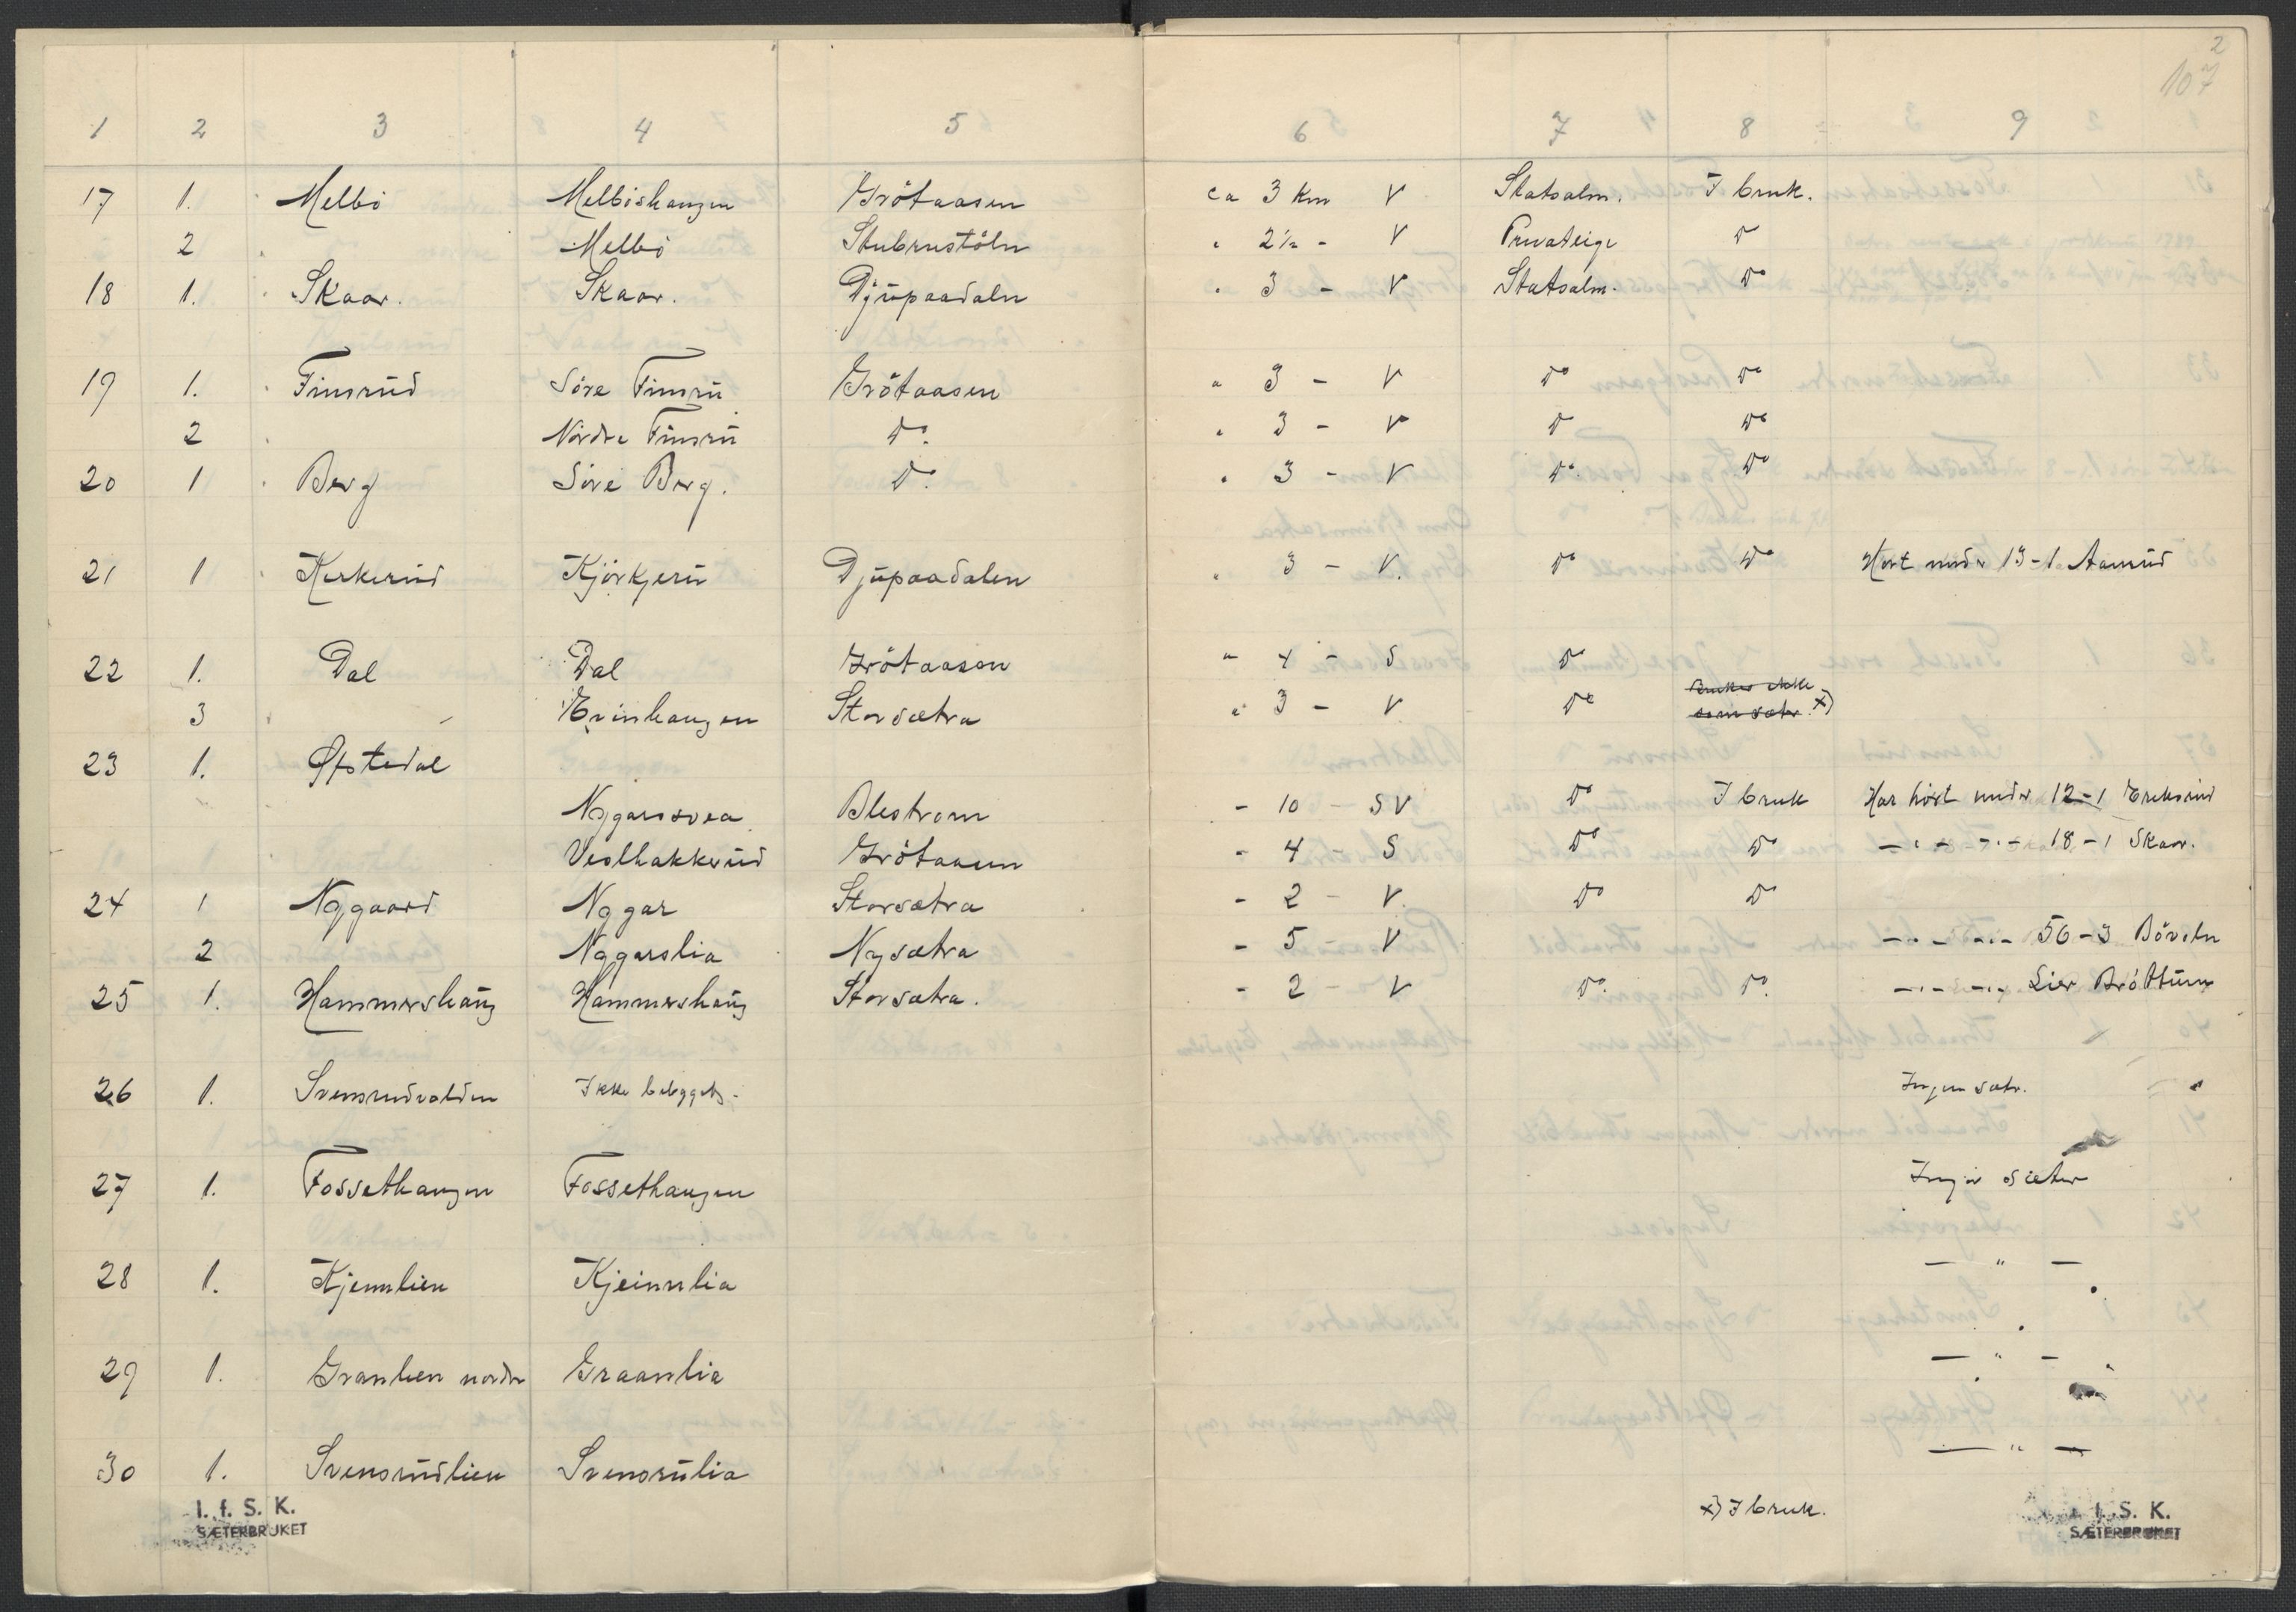 2
107
1 2 3 4 5 6 7 8 9
17 1. Melbö Melböshaugen Grötaasen ca 3 km V Statsalm. I bruk.
2 Melbö Stubrustöln " 2½ - V Privateige Do
18 1. Skaar. Skaar. Djüpaadaln " 3 - V Statsalm. Do
19 1. Finsrüd Söre Finsrü Grötaasen " 3 - V Do Do
2 Nördre Finsrü Do. " 3 - V Do Do
20 1 Berg Söre Berg. Do. " 3 - V Do. Do
21 1 Kirkerüd Kjörkjerü Djüpaadalen " 3 - V. Do Do Hört under 13-1 Aamrüd
22 1. Dal Dal Grötaasen " 4 - S Do
3 - Evinhaugen Storsætra " 3 - V Do Brukes ikke
som sæter. x)
23 1. Øfstedal
Nygarssvea Blestrom - 10 - SV Do I bruk Har hört under 12-1 Ereksrüd
Veslhakkerüd Grötaasen - 4 - S Do Do -"- -"- 18-1 Skaar.
24 1 Nygaard Nygar Storsætra - 2 - V. Do Do
2 Nygarslia Nysætra - 5 - V -"- -"- 56-3 Böveln
25 1. Hammershaüg Hammershaüg Storsætra. - 2 - V Do. Do. -"- -"- Lier Bröttum
26 1. Svensrudvolden Ikke bebygget. Ingen sæter.
27 1. Fossethaugen Fossethaugen Ingen sæter
28 1. Kjennlien Kjeinnlia — " —
29 1. Granlien nordre Graanlia — " —
30 1. Svensrüdlien Svensrülia — " —
x) I bruk.
I. f. S. K.
SÆTERBRUKET
I. f. S. K.
SÆTERBRUKET